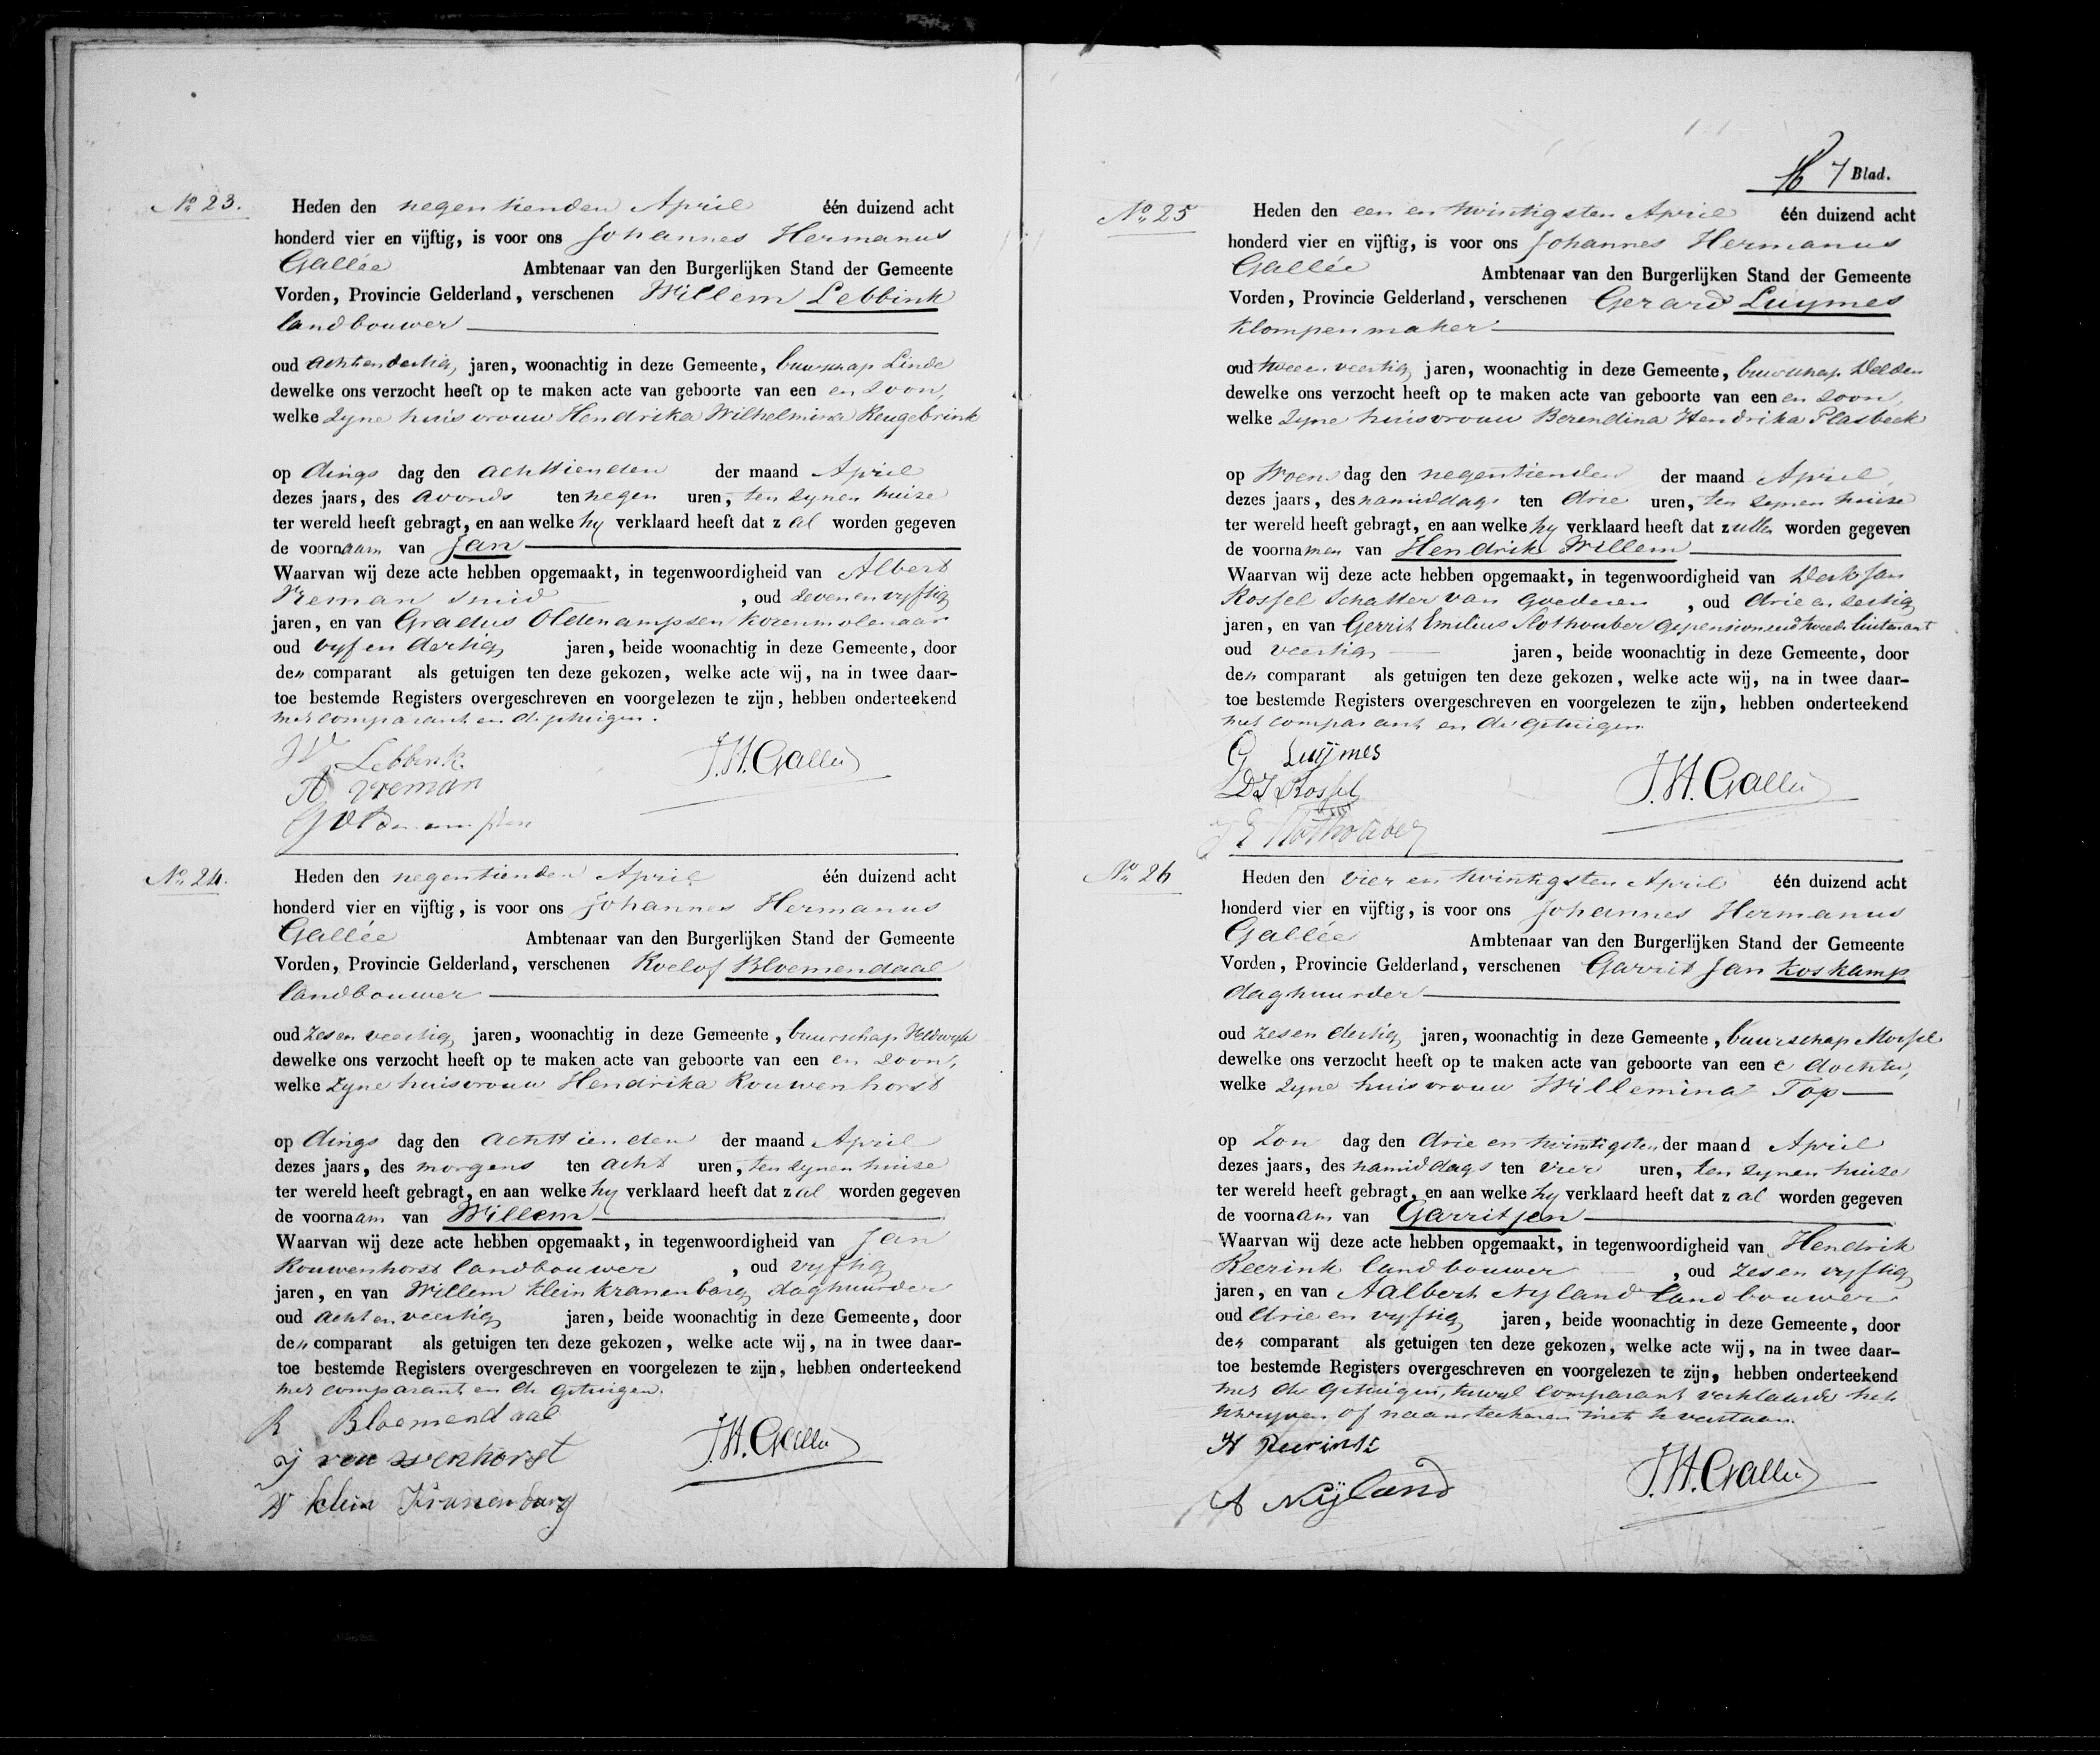 № 23.
Heden den negentienden April één duizend acht
honderd vier en vijftig, is voor ons Johannes Hermanus
Gallée Ambtenaar van den Burgerlijken Stand der Gemeente
Vorden, Provincie Gelderland, verschenen Willem Lebbink
landbouwer
oud achtendertig jaren, woonachtig in deze Gemeente, buurschap Linde
dewelke ons verzocht heeft op te maken acte van geboorte van een en zoon,
welke zyne huisvrouw Hendrika Wilhelmina Reugebrink
op dings dag den achttienden der maand April
dezes jaars, des avonds ten negen uren, ten zynen huize
ter wereld heeft gebragt, en aan welke hy verklaard heeft dat zal worden gegeven
de voornaam van Jan
Waarvan wij deze acte hebben opgemaakt, in tegenwoordigheid van Albert
Vreman smid, oud zevenenvyftig
jaren, en van Gradus Oldenampsen korenmolenaar
oud vyf en dertig jaren, beide woonachtig in deze Gemeente, door
den comparant als getuigen ten deze gekozen, welke acte wij, na in twee daar-
toe bestemde Registers overgeschreven en voorgelezen te zijn, hebben onderteekend
met comparant en de getuigen.
W Lebbink
A Vreman
G Oldenampsen
J.H. Gallée
№ 24.
Heden den negentienden April één duizend acht
honderd vier en vijftig, is voor ons Johannes Hermanus
Gallée Ambtenaar van den Burgerlijken Stand der Gemeente
Vorden, Provincie Gelderland, verschenen Roelof Bloemendaal
landbouwer
oud zes en veertig jaren, woonachtig in deze Gemeente, buurschap Veldwyk
dewelke ons verzocht heeft op te maken acte van geboorte van een en zoon,
welke zyne huisvrouw Hendrika Rouwenhorst
op dings dag den achttienden der maand April
dezes jaars, des morgens ten acht uren, ten zynen huize
ter wereld heeft gebragt, en aan welke hy verklaard heeft dat zal worden gegeven
de voornaam van Willem
Waarvan wij deze acte hebben opgemaakt, in tegenwoordigheid van Jan
Rouwenhorst landbouwer, oud vyftig
jaren, en van Willem Klein Kranenbarg daghuurder
oud acht en veertig jaren, beide woonachtig in deze Gemeente, door
den comparant als getuigen ten deze gekozen, welke acte wij, na in twee daar-
toe bestemde Registers overgeschreven en voorgelezen te zijn, hebben onderteekend
met comparant en de getuigen.
R Bloemendaal
J rouwenhorst
W klein Kranenbarg
J.H. Gallée
7 Blad.
№ 25
Heden den een en twintigsten April één duizend acht
honderd vier en vijftig, is voor ons Johannes Hermanus
Gallée Ambtenaar van den Burgerlijken Stand der Gemeente
Vorden, Provincie Gelderland, verschenen Gerard Luymes
Klompenmaker
oud twee en veertig jaren, woonachtig in deze Gemeente, buurschap Delden
dewelke ons verzocht heeft op te maken acte van geboorte van een en zoon,
welke zyne huisvrouw Berendina Hendrika Plasbeek
op Woens dag den negentienden der maand April
dezes jaars, des namiddags ten drie uren, ten zynen huize
ter wereld heeft gebragt, en aan welke hy verklaard heeft dat zullen worden gegeven
de voornamen van Hendrik Willem
Waarvan wij deze acte hebben opgemaakt, in tegenwoordigheid van Derk Jan
Rossel Schatter van goederen, oud drie en zestig
jaren, en van Gerrit Emilius Slothouber gepensioneerd tweede luitenant
oud veertig jaren, beide woonachtig in deze Gemeente, door
den comparant als getuigen ten deze gekozen, welke acte wij, na in twee daar-
toe bestemde Registers overgeschreven en voorgelezen te zijn, hebben onderteekend
met comparant en de getuigen.
G Luijmes
DJ Rossel
G E Slothouber
J.H. Gallée
№ 26
Heden den vier en twintigsten April één duizend acht
honderd vier en vijftig, is voor ons Johannes Hermanus
Gallée Ambtenaar van den Burgerlijken Stand der Gemeente
Vorden, Provincie Gelderland, verschenen Garrit Jan Koskamp
daghuurder
oud zes en dertig jaren, woonachtig in deze Gemeente, buurschap Mossel
dewelke ons verzocht heeft op te maken acte van geboorte van een e dochter,
welke zyne huisvrouw Willemina Top
op Zon dag den drie en twintigsten der maand April
dezes jaars, des namiddags ten vier uren, ten zynen huize
ter wereld heeft gebragt, en aan welke hy verklaard heeft dat zal worden gegeven
de voornaam van Garritjen
Waarvan wij deze acte hebben opgemaakt, in tegenwoordigheid van Hendrik
Reerink landbouwer, oud zes en vyftig
jaren, en van Aalbert Nyland landbouwer
oud drie en vyftig jaren, beide woonachtig in deze Gemeente, door
den comparant als getuigen ten deze gekozen, welke acte wij, na in twee daar-
toe bestemde Registers overgeschreven en voorgelezen te zijn, hebben onderteekend
met de getuigen, terwyl comparant verklaarde het
schryven of naamteekenen niet te verstaan.
H Reerink
A Nijland
J.H. Gallée